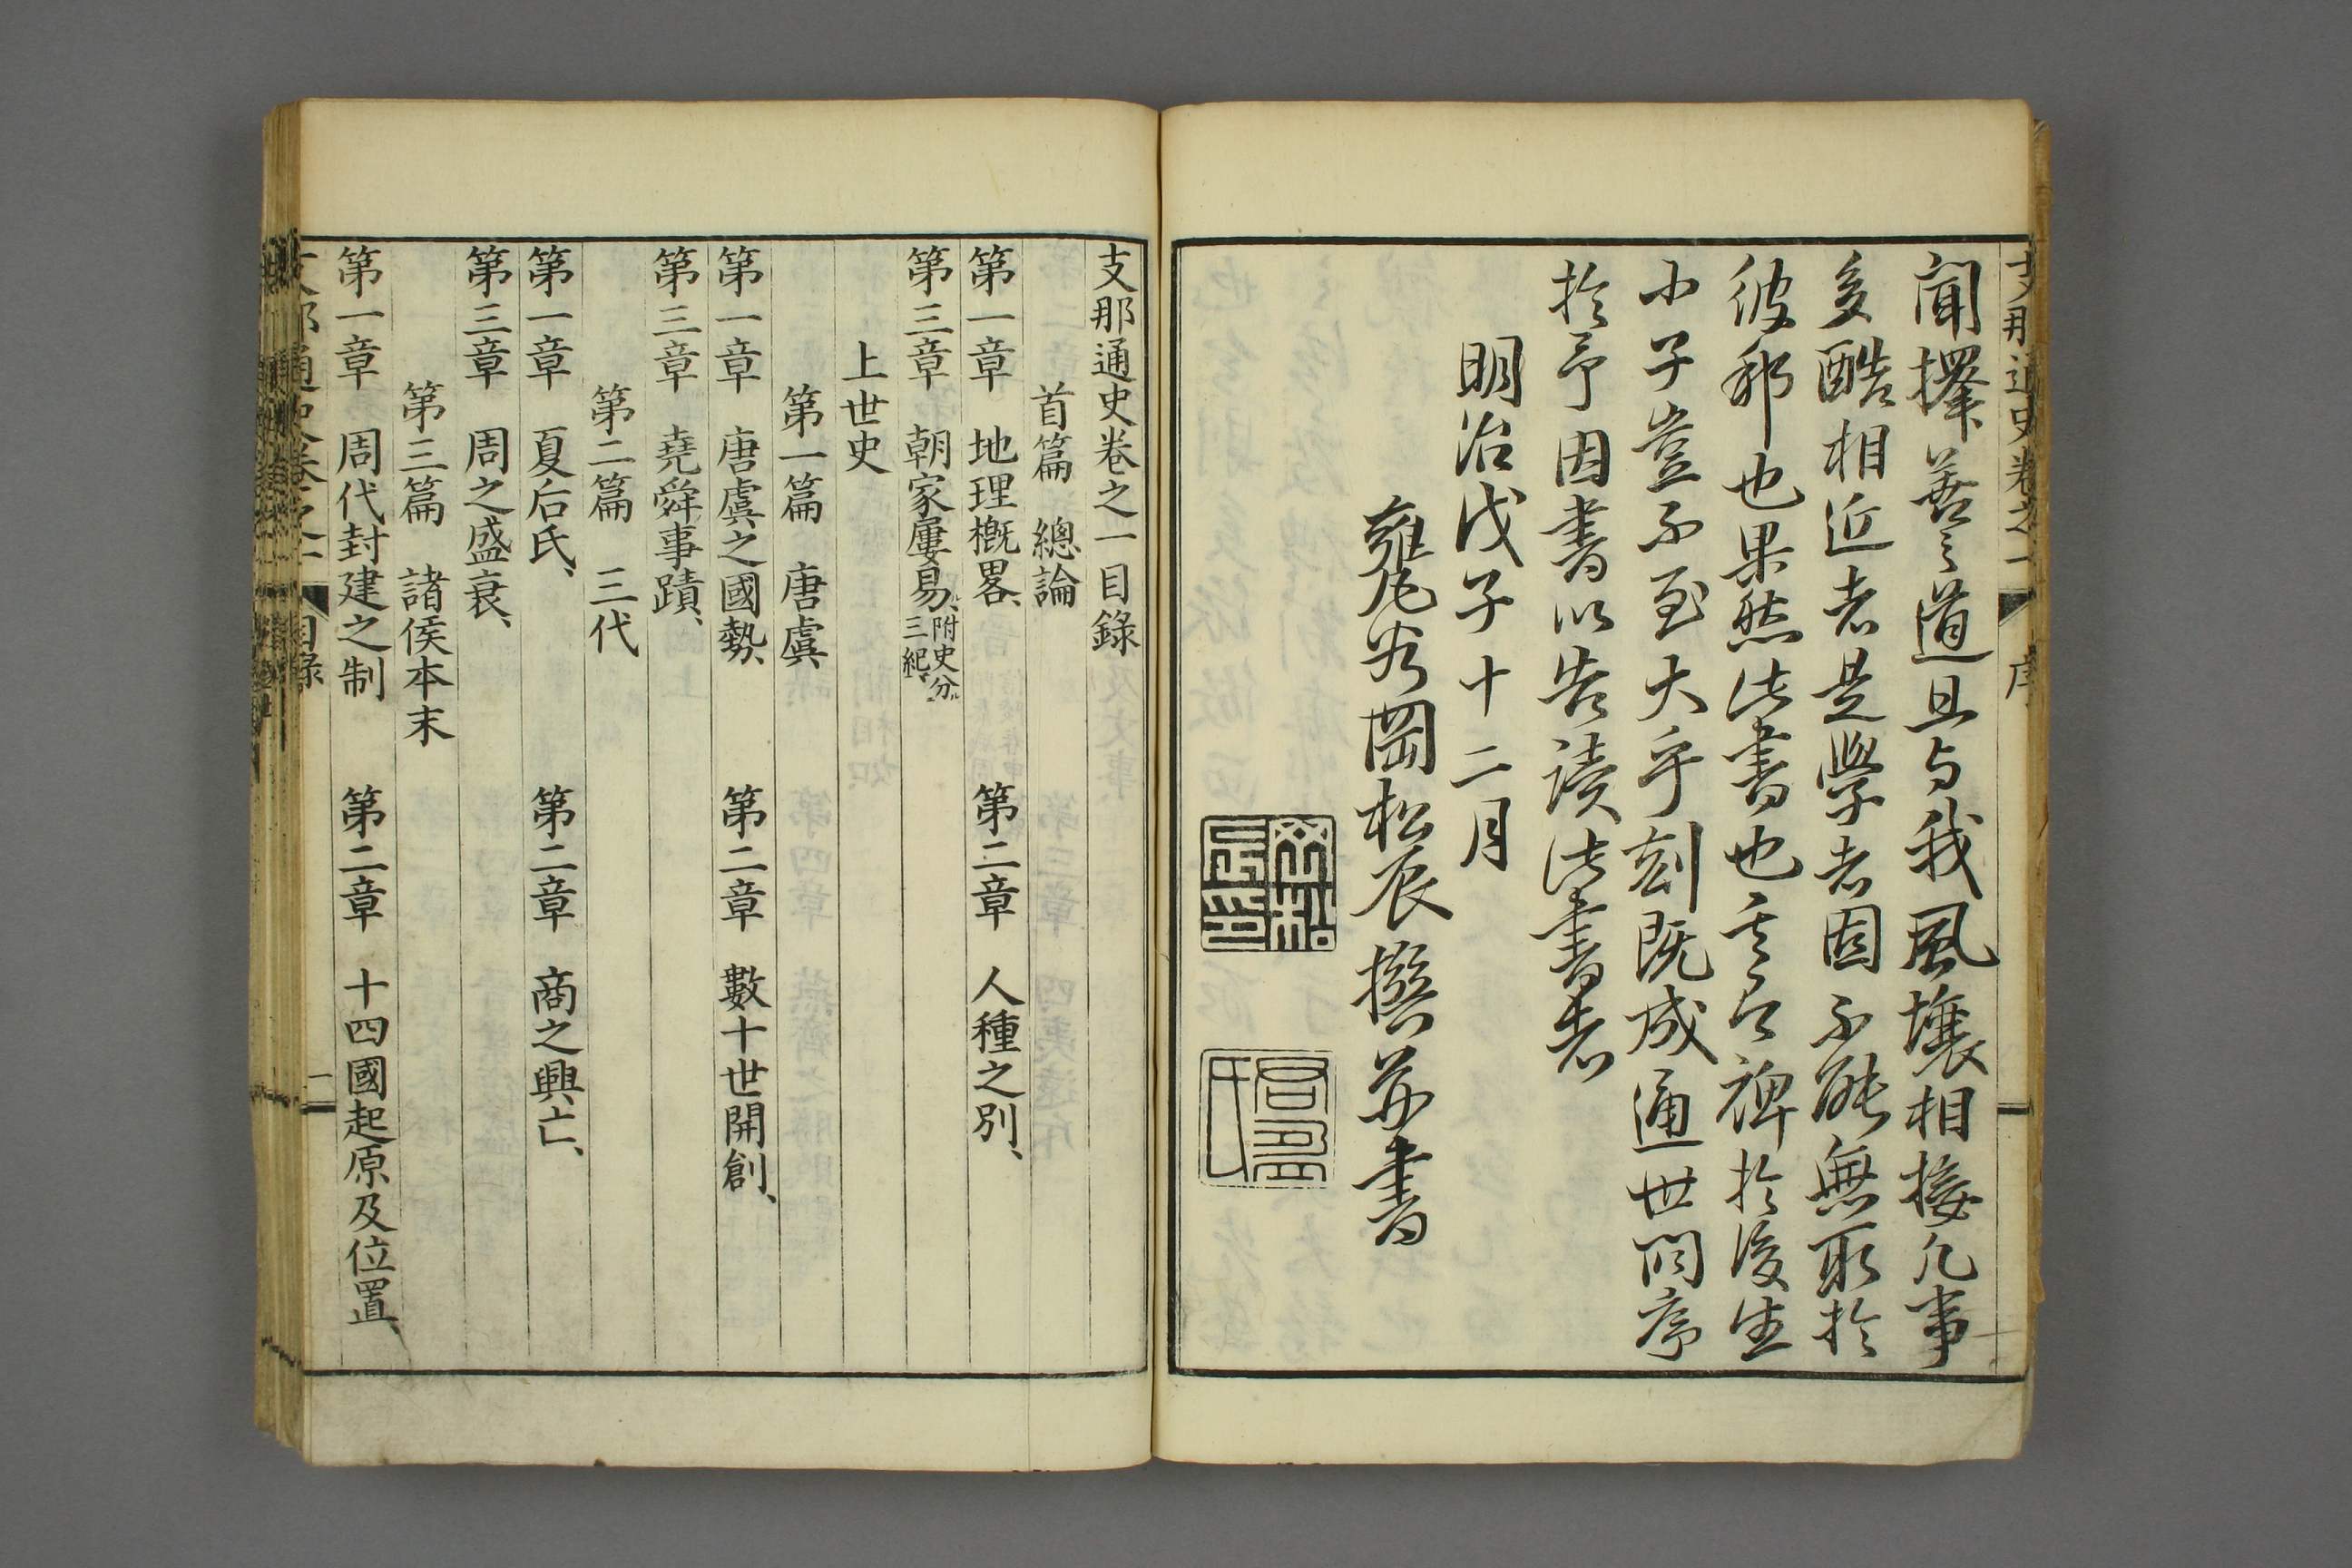 支那通史卷之一
序
聞擇善之道且与我風壤相接凡事
多酷相近者是學者固不能無取於
彼邪也果然此書也其有裨於後生
小子豈不至大乎刻既成通世問序
於予因書以告讀此書者
明治戊子十二月
甕谷岡松辰撰并書
支那通史卷之一目錄
首篇 總論
第一章 地理概畧、 第二章 人種之別、
第三章 朝家屢易、附史分三紀、
上世史
第一篇 唐虞
第一章 唐虞之國勢、 第二章 數十世開創、
第三章 堯舜事蹟、
第二篇 三代
第一章 夏后氏、 第二章 商之興亡、
第三章 周之盛衰、
第三篇 諸侯本末
第一章 周代封建之制 第二章 十四國起原及位置、
支那通史卷之一 目錄 一